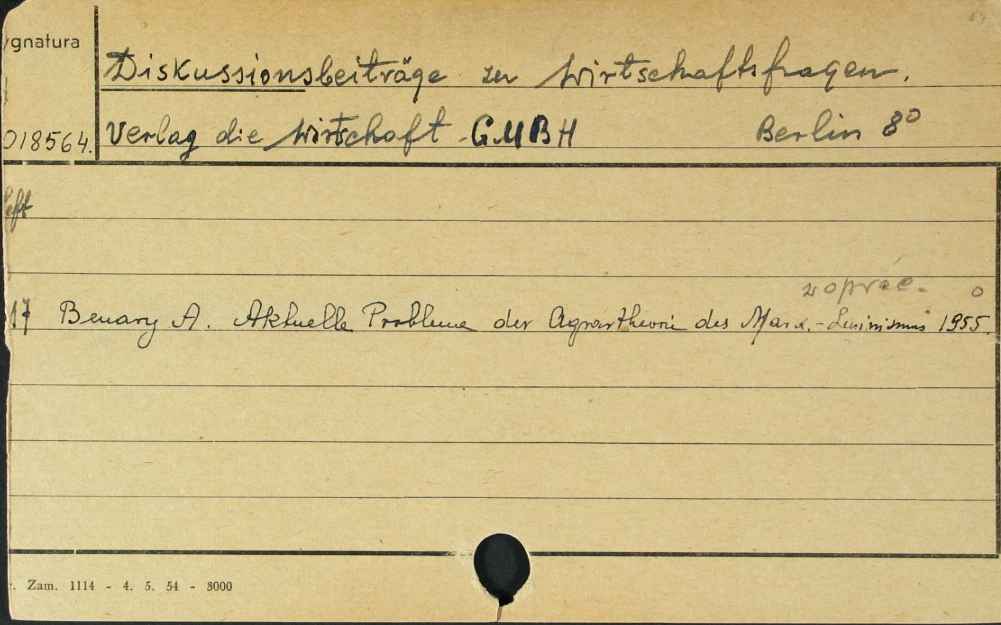 ygnatura
Diskussionsbeiträge zu Wirtschaftsfragen.
018564. Verlag die Wirtschaft GMBH Berlin 8°
Heft
w oprac. o
17 Benary A. Aktuelle Probleme der Agrartheorie des Marx.-Leninismus 1955.
Zam. 1114 - 4. 5. 54 - 3000